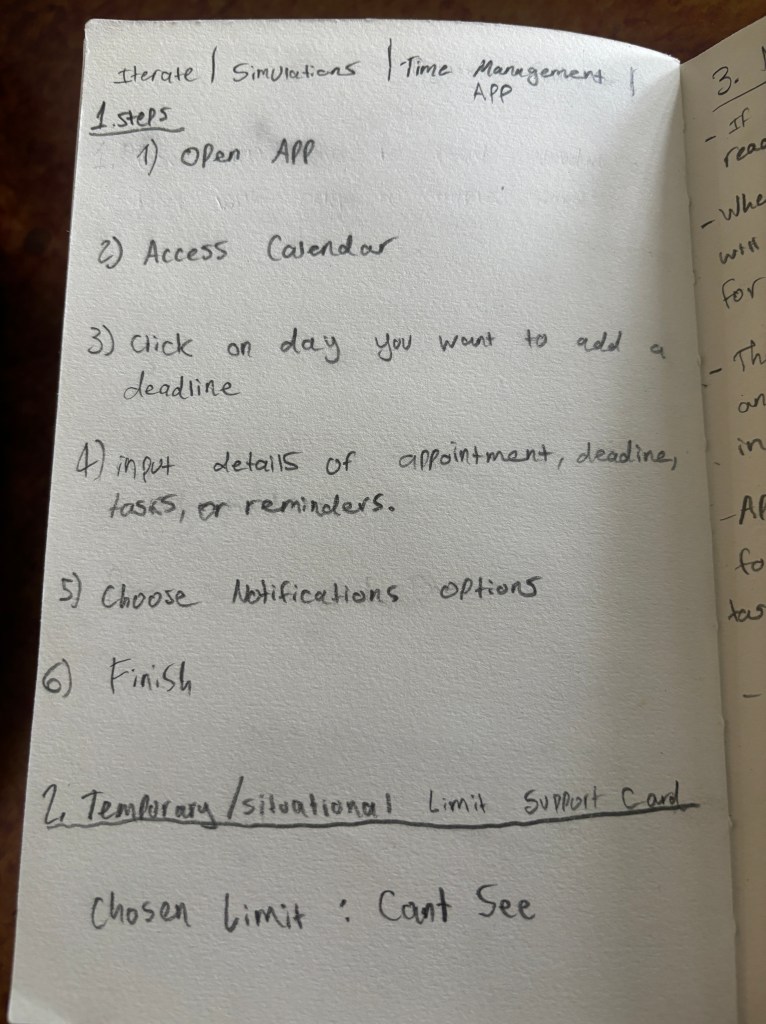 Iterate | Simulations | Time Management |
APP
1. steps
1) Open APP
2) Access Calendar
3) Click on day you want to add a
deadline
4) input details of appointment, deadine,
tasks, or reminders.
5) Choose Notifications options
6) Finish
2. Temporary/situational Limit Support Card
Chosen Limit : Cant See
3.
- If
- Whe
will
for
- Th
an
in
- AP
fo
tas
-